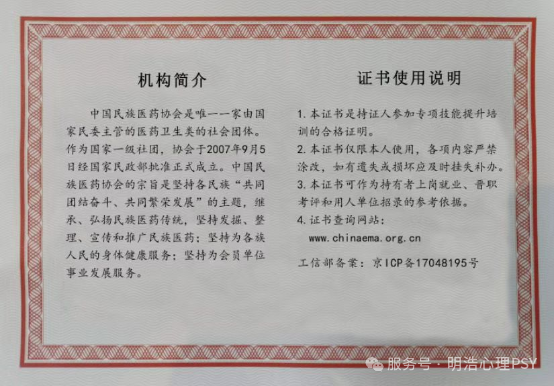 机构简介
中国民族医药协会是唯一一家由国
家民委主管的医药卫生类的社会团体。
作为国家一级社团,协会于2007年9月5
日经国家民政部批准正式成立。中国民
族医药协会的宗旨是坚持各民族“共同
团结奋斗、共同繁荣发展”的主题,继
承、弘扬民族医药传统,坚持发掘、整
理、宣传和推广民族医药;坚持为各族
人民的身体健康服务;坚持为会员单位
事业发展服务。
证书使用说明
1.本证书是持证人参加专项技能提升培
训的合格证明。
2.本证书仅限本人使用,各项内容严禁
涂改,如有遗失或损坏应及时挂失补办。
3.本证书可作为持有者上岗就业、晋职
考评和用人单位招录的参考依据。
4.证书查询网站:
www.chinaema.org.cn
工信部备案:京ICP备17048195号
服务号·明浩心理PSY